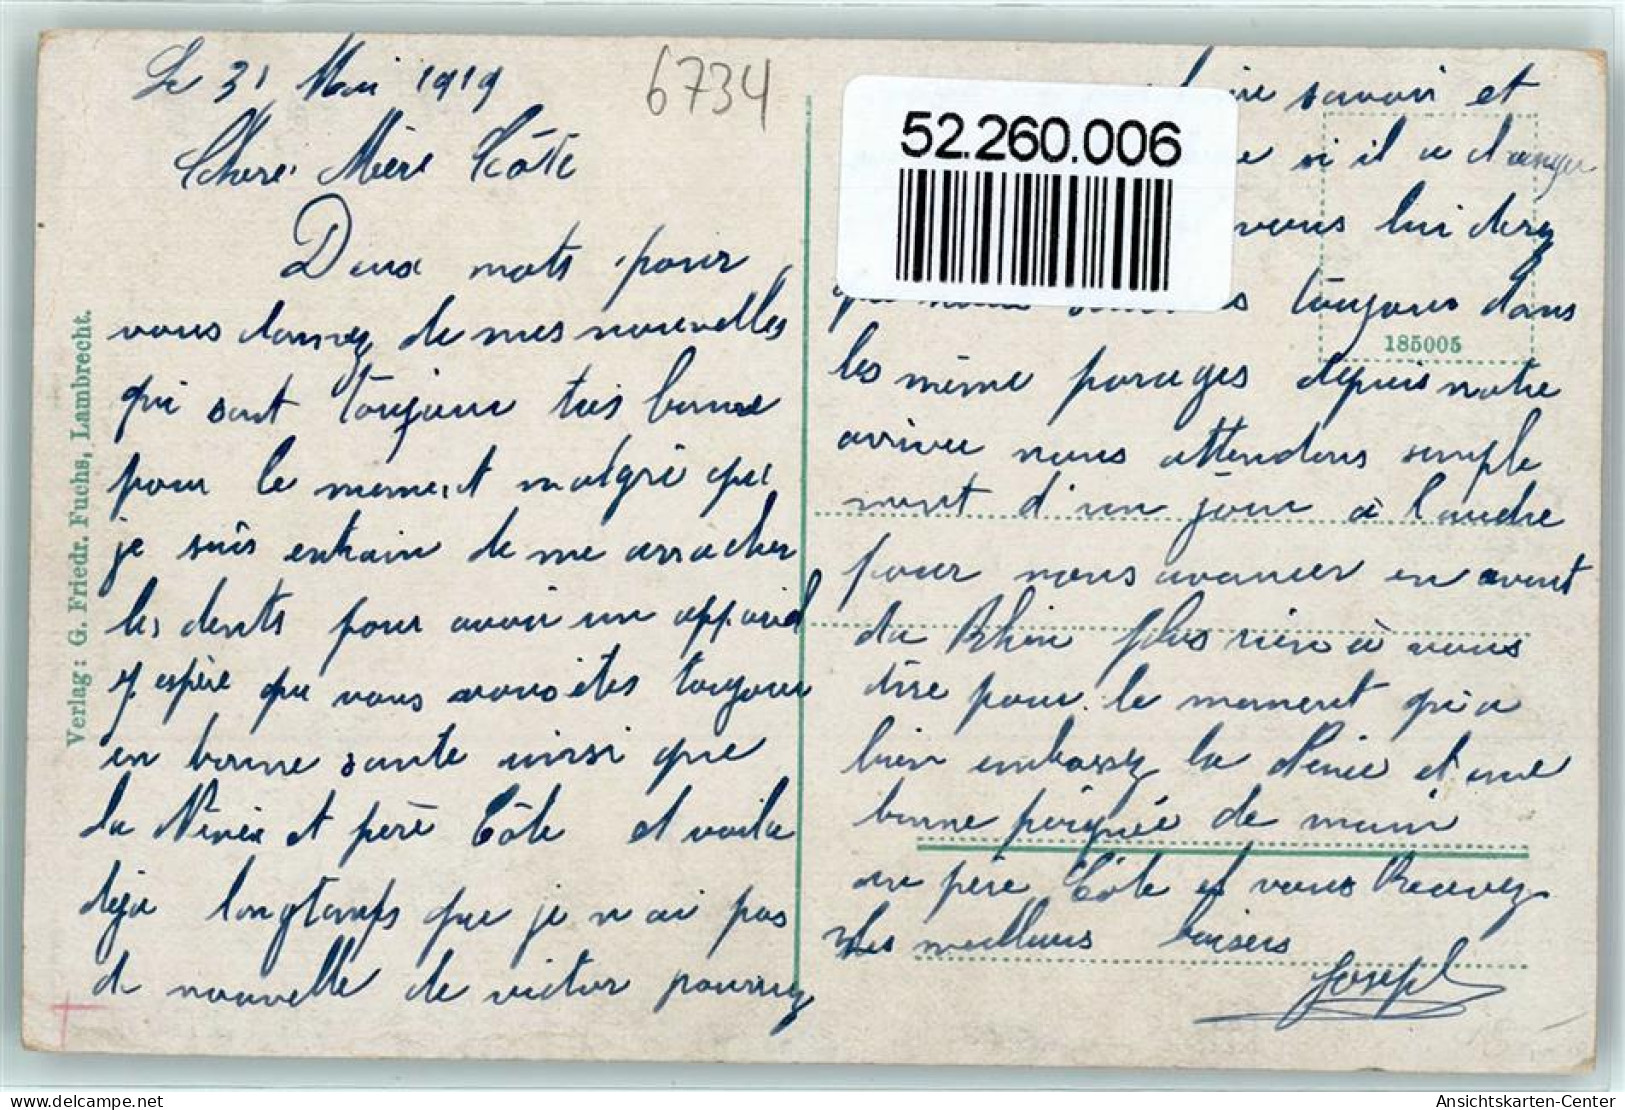 Le 31 Mai 1919
6734
Chere Mère Côte
Deux mots pour
vous donnez de mes nouvelles
qui sont toujours très bonne
pour le moment malgré que
je suis entrain de me arracher
les dents pour avoir un appareil
j espère que vous vous êtes toujours
en bonne sante ainsi que
la Nénée et père Côte et voila
déja longtemps que je n ai pas
de nouvelle de victor pourrez
savoir et
si il a changer
vous lui direz
que nous toujours dans
les même parages depuis notre
arrivee nous attendons simple
ment d'un jour à l'audre
pour nous avancer en avant
du Rhin plus rien à vous
dire pour le moment qu'a
bien embassez la Nénée et une
bonne poignée de main
au père Côte et vous Recevez
mes meilleurs baisers
Joseph
52.260.006
185005
Verlag: G. Friedr. Fuchs, Lambrecht.
Ansichtskarten-Center